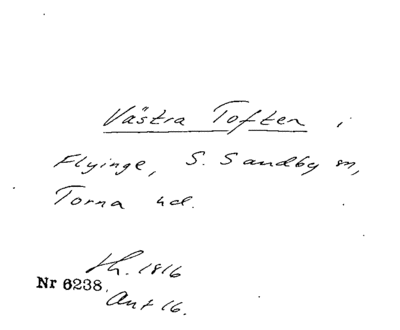 Västra Toften i
Flyinge, S. Sandby sn,
Torna hd.
Sh. 1816
Nr 6238.
Akt 16.